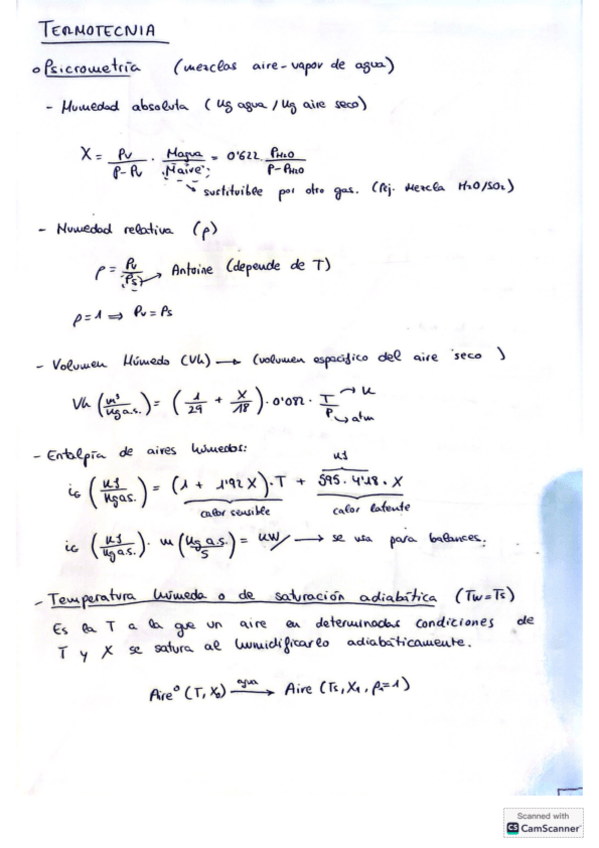 TERMOTECNIA
o Psicrometría (mezclas aire-vapor de agua)
- Humedad absoluta (Kg agua / Kg aire seco)
X = Pv / (P - Pv) · Magua / Maire = 0'622 · PH2O / (P - PH2O)
sustituible por otro gas. (Pej. Mezcla H2O/SO2)
- Humedad relativa (ρ)
ρ = Pv / Ps → Antoine (depende de T)
ρ=1 ⟹ Pv = Ps
- Volumen Húmedo (Vh) → (volumen específico del aire seco )
Vh (m³ / Kg a.s.) = (1/29 + X/18) · 0'082 · T/P → K → atm
- Entalpía de aires húmedos: KJ
iG (KJ / Kg as.) = (1 + 1'92 X) · T + 595 · 4'18 · X
calor sensible calor latente
iG (KJ / Kg as.) · m (Kg a.s. / s) = KW → se usa para balances.
- Temperatura húmeda o de saturación adiabática (Tw=Ts)
Es la T a la que un aire en determinadas condiciones de
T y X se satura al humidificarlo adiabáticamente.
Aire⁰ (T, X0) agua → Aire (Ts, X1, ρ=1)
Scanned with
CS CamScanner